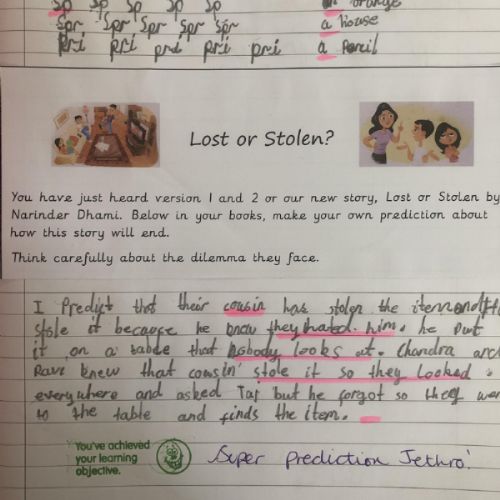 Sp Sp Sp Sp Sp an orange
Spr Spr Spr Spr Spr a house
Pri Pri pri pri pri a Pencil
Lost or Stolen?
You have just heard version 1 and 2 or our new story, Lost or Stolen by
Narinder Dhami. Below in your books, make your own prediction about
how this story will end.
Think carefully about the dilemma they face.
I Predict that their cousin has stolen the item and
stole it because he know they hated him. he put
it on a table that nobody looks at. Chandra and
Ravi knew that cousin stole it so they looked
everywhere and asked Taj but he forgot so they
to the table and finds the item.
You've achieved
your learning
objective.
Super prediction Jethro!